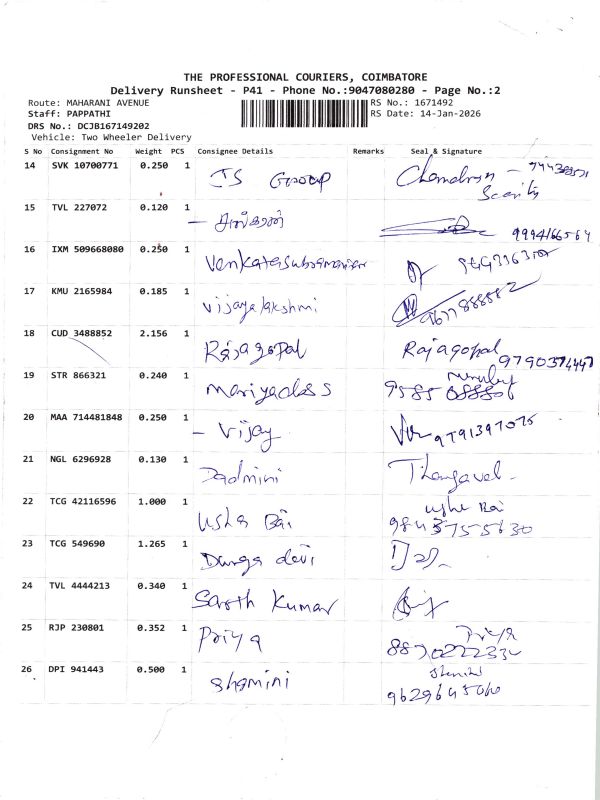 THE PROFESSIONAL COURIERS, COIMBATORE
Delivery Runsheet - P41 - Phone No.:9047080280 - Page No.:2
Route: MAHARANI AVENUE RS No.: 1671492
Staff: PAPPATHI RS Date: 14-Jan-2026
DRS No.: DCJB167149202
Vehicle: Two Wheeler Delivery
S No Consignment No Weight PCS Consignee Details Remarks Seal & Signature
14 SVK 10700771 0.250 1 JS Group
15 TVL 227072 0.120 1
16 IXM 509668080 0.250 1 Venkatasubramanian
17 KMU 2165984 0.185 1 Vijayalakshmi 9677888882
18 CUD 3488852 2.156 1 Rajagopal Rajagopal
19 STR 866321 0.240 1 Mariyadass
20 MAA 714481848 0.250 1 - Vijay 9791397075
21 NGL 6296928 0.130 1 Padmini Thangavel
22 TCG 42116596 1.000 1 Usha Bai Usha Bai
23 TCG 549690 1.265 1 Durga devi
24 TVL 4444213 0.340 1 Sarth Kumar
25 RJP 230801 0.352 1 Priya Priya
26 DPI 941443 0.500 1 Shamini